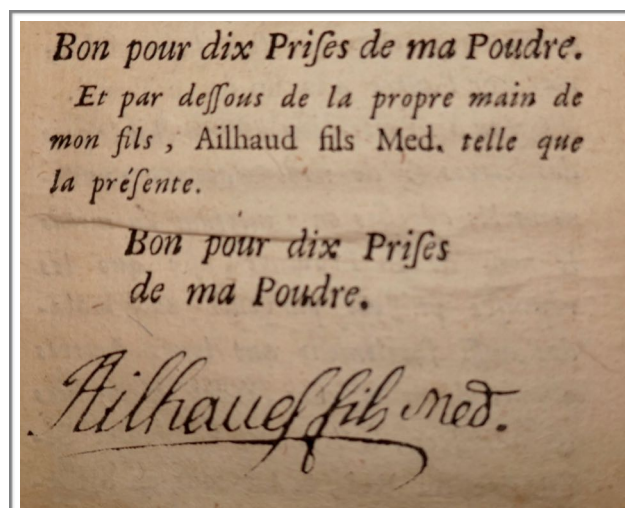 Bon pour dix Priſes de ma Poudre.
Et par deſſous de la propre main de
mon fils, Ailhaud fils Med. telle que
la préſente.
Bon pour dix Priſes
de ma Poudre.
Ailhaud fils Med.